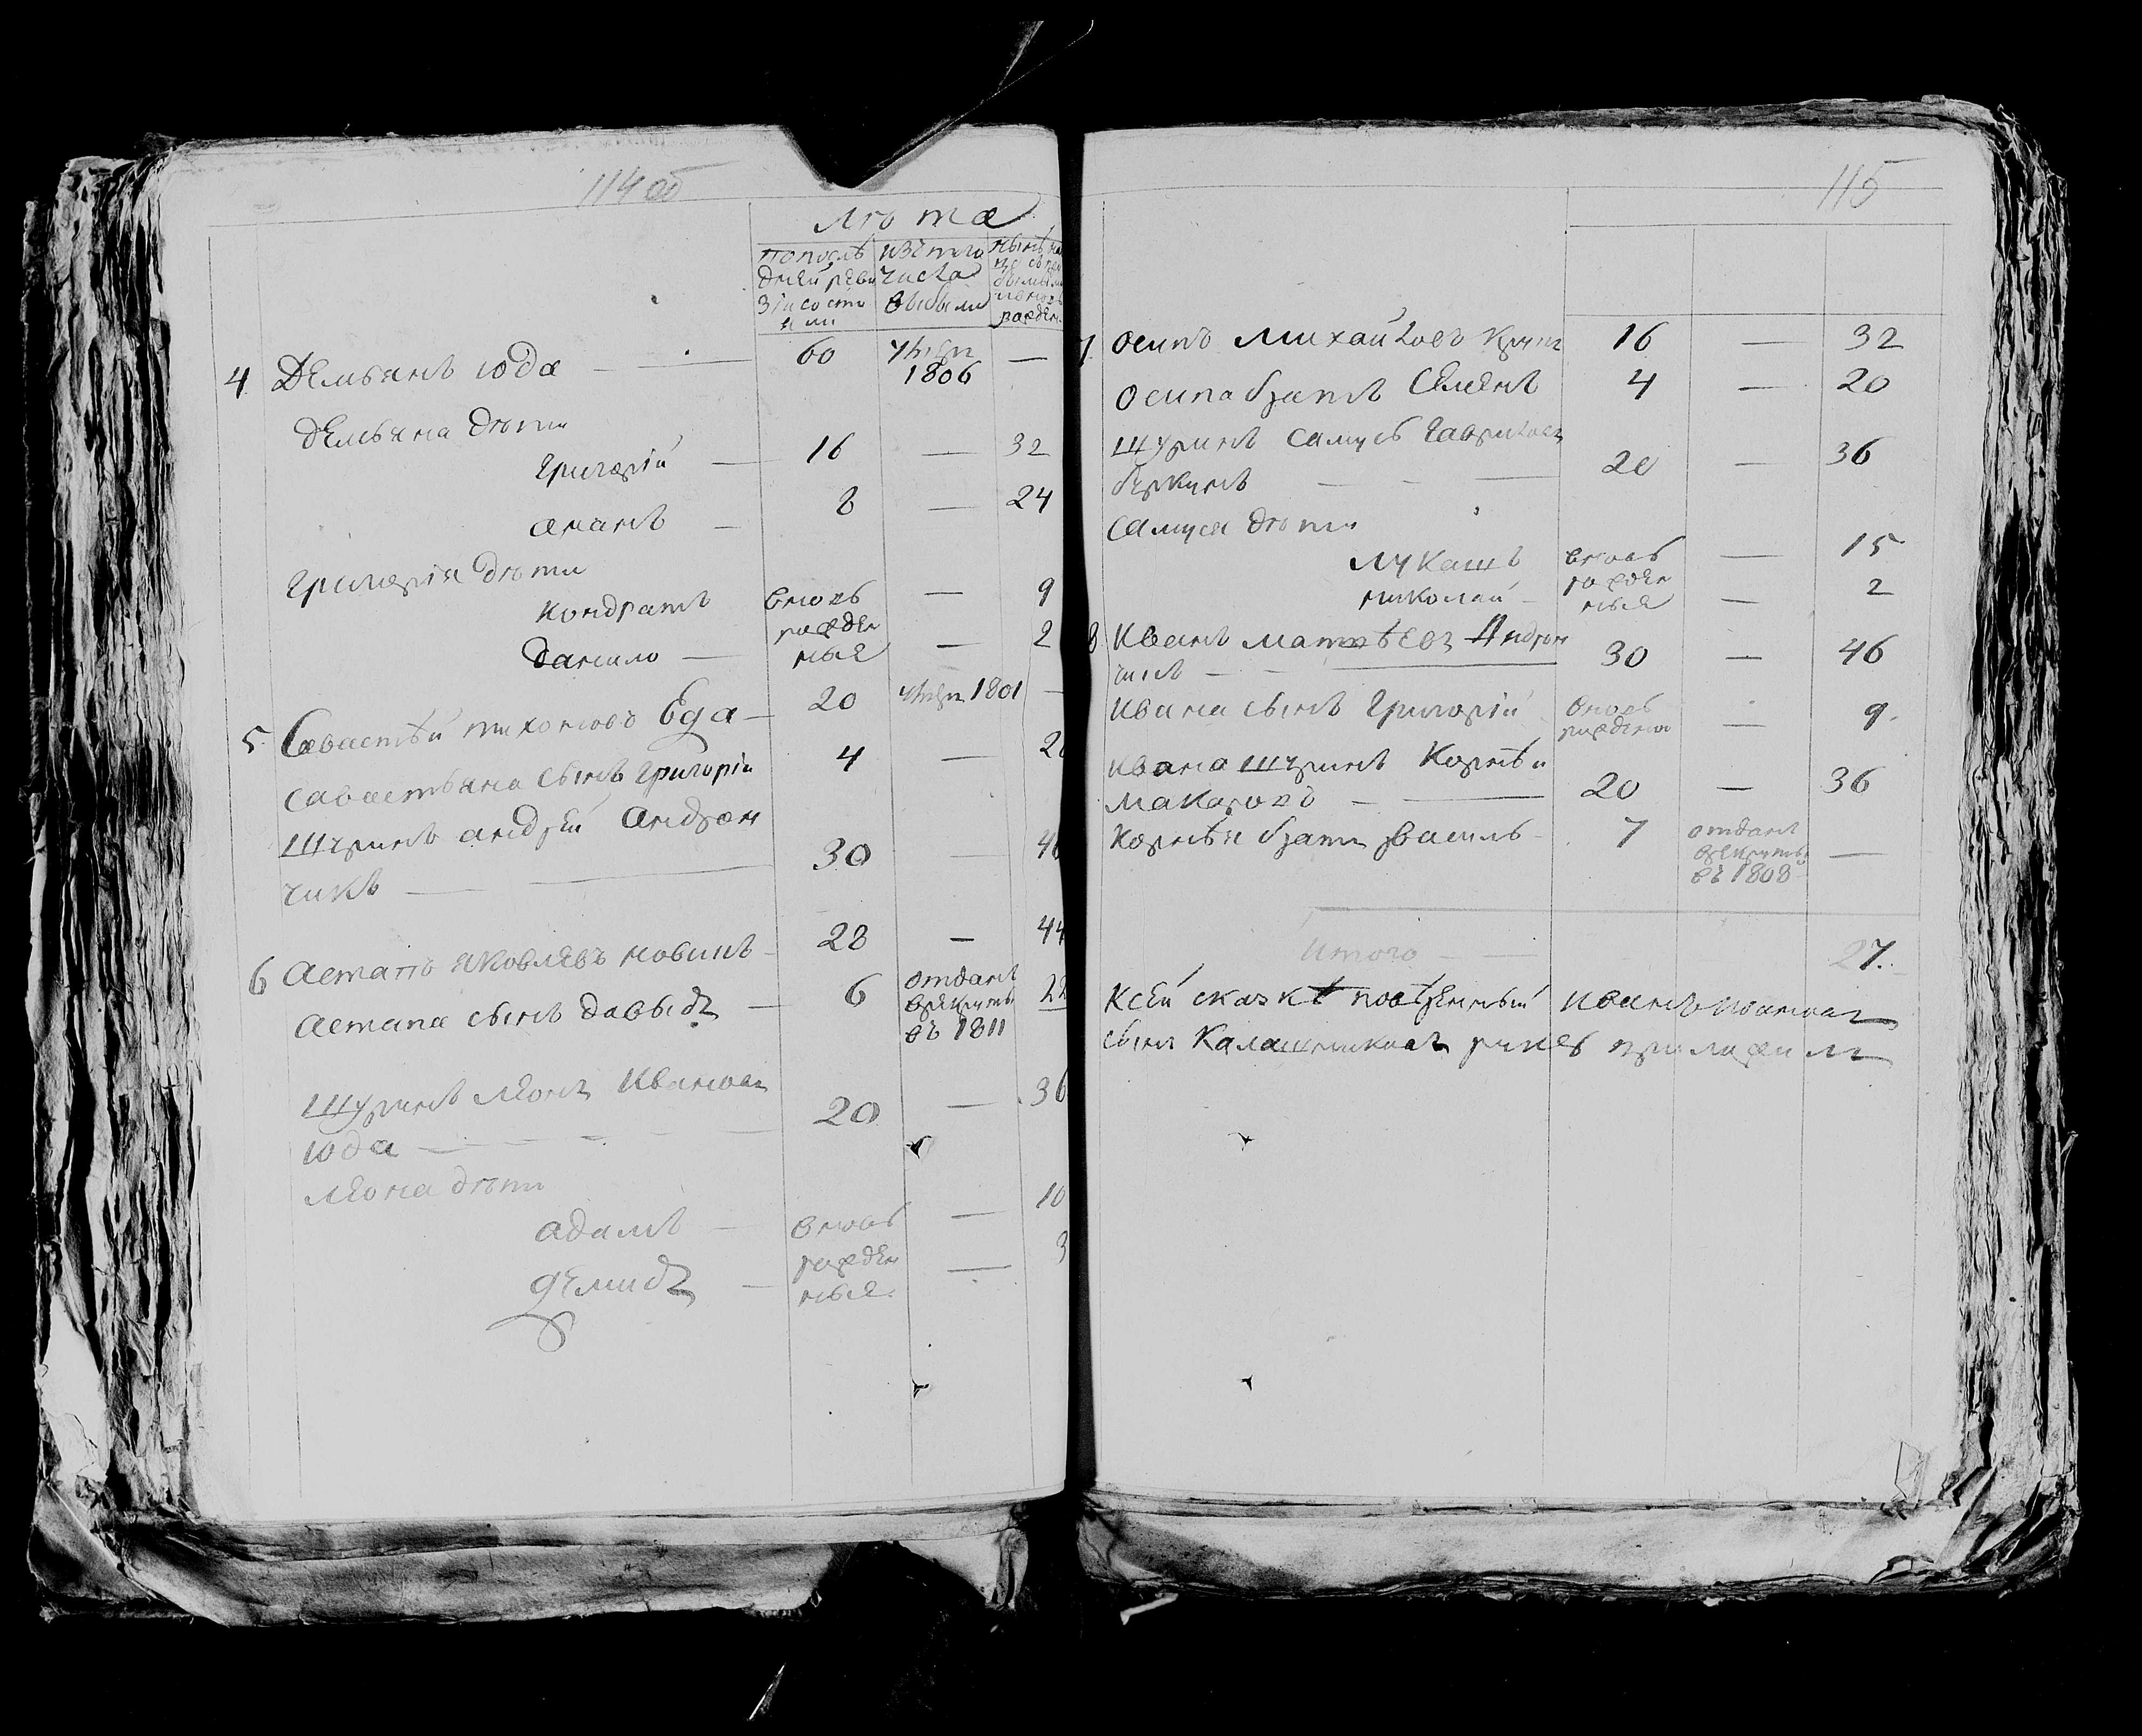 114 об
Лѣта
по послѣ дней реви зіи состо яли
изъ того числа выбыли
4 Демьянъ Юда — 60 умеръ 1806 —
Демьяна дѣти
Григорій — 16 — 32
Ананъ — 8 — 24
Григорія дѣти
Кондратъ вновь — 9
Данило — рожден ныя — 2
5 Савастѣй Тихоновъ Еда — 20 умеръ 1801 —
Савастьяна сынъ Григорій 4 —
Шуринъ Андрей Андрон
чикъ — 30 — 46
6 Астапъ Яковлевъ Новикъ — 28 — 44
Астапа сынъ Давыдъ — 6 отданъ врекруты въ 1811 22
Шуринъ Леонъ Ивановъ
Юда — 20 — 36
Леона дѣти
Адамъ — вновь — 10
Демидъ — рожден ныя — 3
115
7 Осипъ Михайловъ 16 — 32
Осипа братъ Семенъ 4 — 20
Шуринъ Самусь Гаврилов
20 — 36
Самуся дѣти
Лукашъ вновь — 15
Николай — рожден ныя — 2
8 Иванъ Матвѣевъ Андрон
чикъ — 30 — 46
Ивана сынъ Григорій вновь рожденъ — 9
Ивана шуринъ Корнѣй
Макаровъ — 20 — 36
Корнѣя братъ Василь 7 отданъ врекруты въ 1808 —
Итого — 27.
К сей сказкѣ повѣренный Иванъ Ивановъ
сынъ Калашниковъ руку приложилъ